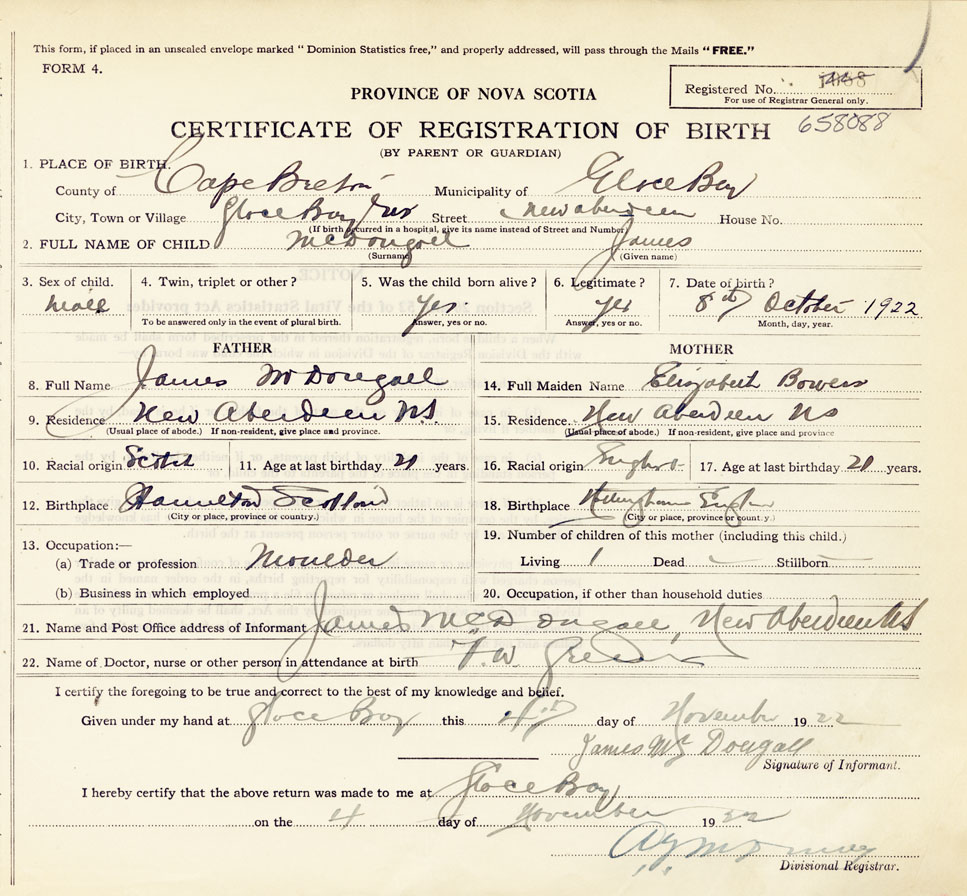 This form, if placed in an unsealed envelope marked "Dominion Statistics free," and properly addressed, will pass through the Mails "FREE."
FORM 4.
Registered No.
For use of Registrar General only.
PROVINCE OF NOVA SCOTIA
CERTIFICATE OF REGISTRATION OF BIRTH 658088
(BY PARENT OR GUARDIAN)
1. PLACE OF BIRTH.
County of Cape Breton Municipality of Glace Bay
City, Town or Village Glace Bay NS Street New Aberdeen House No.
(If birth occurred in a hospital, give its name instead of Street and Number)
2. FULL NAME OF CHILD McDougall James
(Surname) (Given name)
3. Sex of child. 4. Twin, triplet or other? 5. Was the child born alive? 6. Legitimate? 7. Date of birth?
Male Yes. Yes 8th October 1922
To be answered only in the event of plural birth. Answer, yes or no. Answer, yes or no. Month, day, year.
FATHER MOTHER
8. Full Name James McDougall 14. Full Maiden Name Elizabeth Bowers
9. Residence New Aberdeen N.S. 15. Residence. New Aberdeen NS
(Usual place of abode.) If non-resident, give place and province. (Usual place of abode.) If non-resident, give place and province
10. Racial origin Scotch 11. Age at last birthday 21 years. 16. Racial origin 17. Age at last birthday 21 years.
12. Birthplace Hamilton Scotland 18. Birthplace
(City or place, province or country.) (City or place, province or country.)
13. Occupation:— 19. Number of children of this mother (including this child.)
(a) Trade or profession Moulder Living 1 Dead Stillborn
(b) Business in which employed 20. Occupation, if other than household duties
21. Name and Post Office address of Informant James McDougall, New Aberdeen NS
22. Name of Doctor, nurse or other person in attendance at birth F. W.
I certify the foregoing to be true and correct to the best of my knowledge and belief.
Given under my hand at Glace Bay this 4th day of November 1922
James Mc Dougall
Signature of Informant.
I hereby certify that the above return was made to me at Glace Bay
on the 4 day of November 1922
Divisional Registrar.